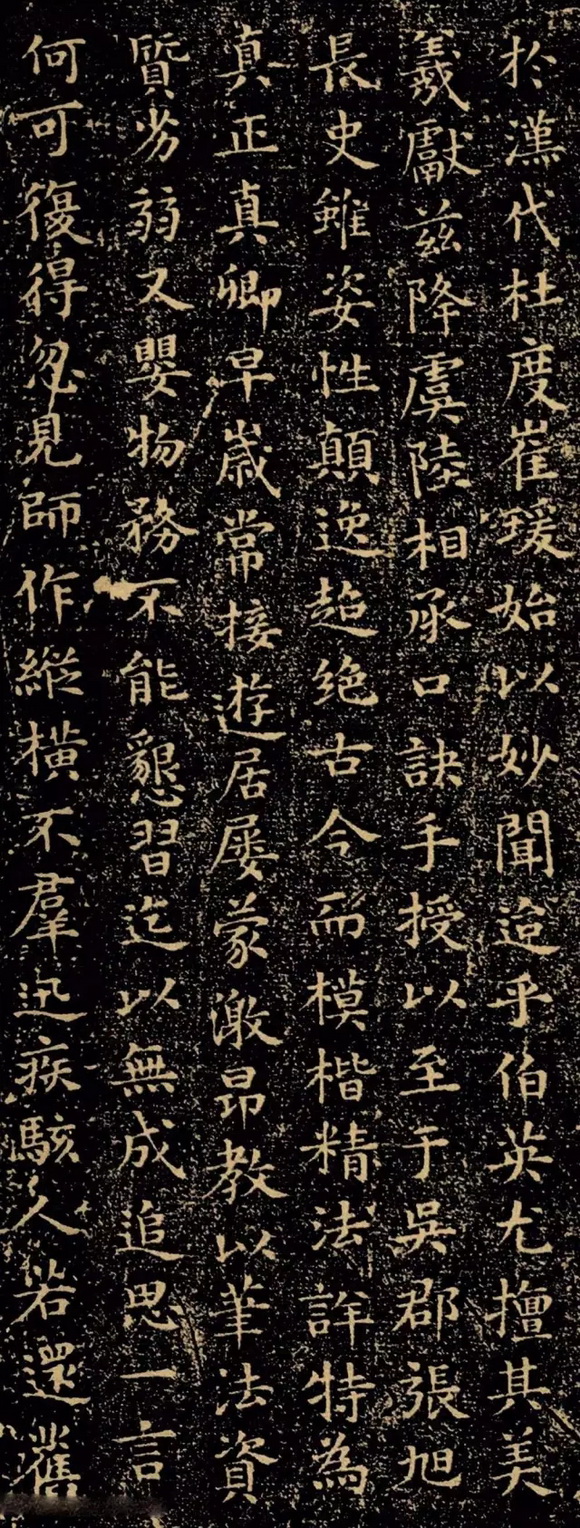 於漢代杜度崔瑗始以妙聞迨乎伯英尤擅其美
羲獻茲降虞陸相承口訣手授以至于吳郡張旭
長史雖姿性顛逸超絕古今而模楷精法詳特為
真正真卿早歲常接遊居屢蒙激昂教以筆法資
質劣弱又嬰物務不能懇習迄以無成追思一言
何可復得忽見師作縱橫不羣迅疾駭人若還舊